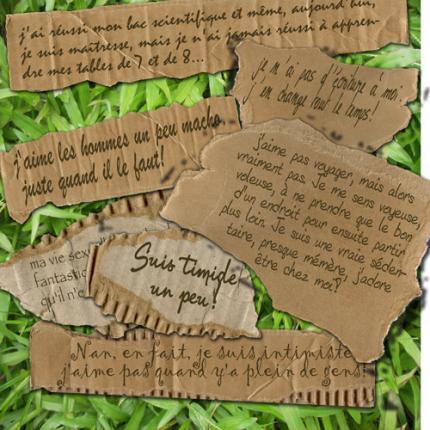 j'ai réussi mon bac scientifique et même, aujourd'hui,
je suis maîtresse, mais je n'ai jamais réussi à appren-
dre mes tables de 7 et de 8...
je n'ai pas d'écriture à moi.
j'en change tout le temps!
j'aime les hommes un peu macho
juste quand il le faut!
J'aime pas voyager, mais alors
vraiment pas. Je me sens voyeuse,
voleuse, à ne prendre que le bon
d'un endroit pour ensuite partir
plus loin. Je suis une vraie séden-
taire, presque mémère, j'adore
être chez moi!
ma vie
fantastiq
qu'il n'e
Suis timide,
un peu!
Nan, en fait, je suis intimiste
j'aime pas quand y'a plein de gens!